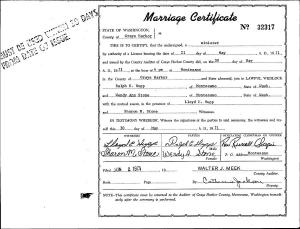 MUST BE USED WITHIN 30 DAYS
FROM DATE OF ISSUE
Marriage Certificate
STATE OF WASHINGTON,
County of Grays Harbor
Nº 32317
THIS IS TO CERTIFY, that the undersigned, a minister
by authority of a License bearing date the 21 day of May A. D. 1971
and issued by the County Auditor of Grays Harbor County did, on the 30 day of May
A. D. 1971 at the hour of 5 pm at Montesano
in the County of Grays Harbor and State aforesaid, join in LAWFUL WEDLOCK
Ralph E. Hupp of Montesano State of Wash.
and Wendy Ann Stone of Montesano State of Wash.
with mutual assent, in the presence of Lloyd E. Hupp
and Sharon M. Stone witnesses.
IN TESTIMONY WHEREOF, Witness the signatures of the parties to said ceremony, the witnesses and myself,
this 30 day of May A. D. 1971
WITNESSES
PARTIES
Sharon M. Stone
Wendy A. Stone
Montesano
Washington
Filed JUN 2 1971
WALTER J. MEEK
County Auditor.
Page
By
Deputy
NOTE—This certificate must be returned to the Auditor of Grays Harbor County, Montesano, Washington